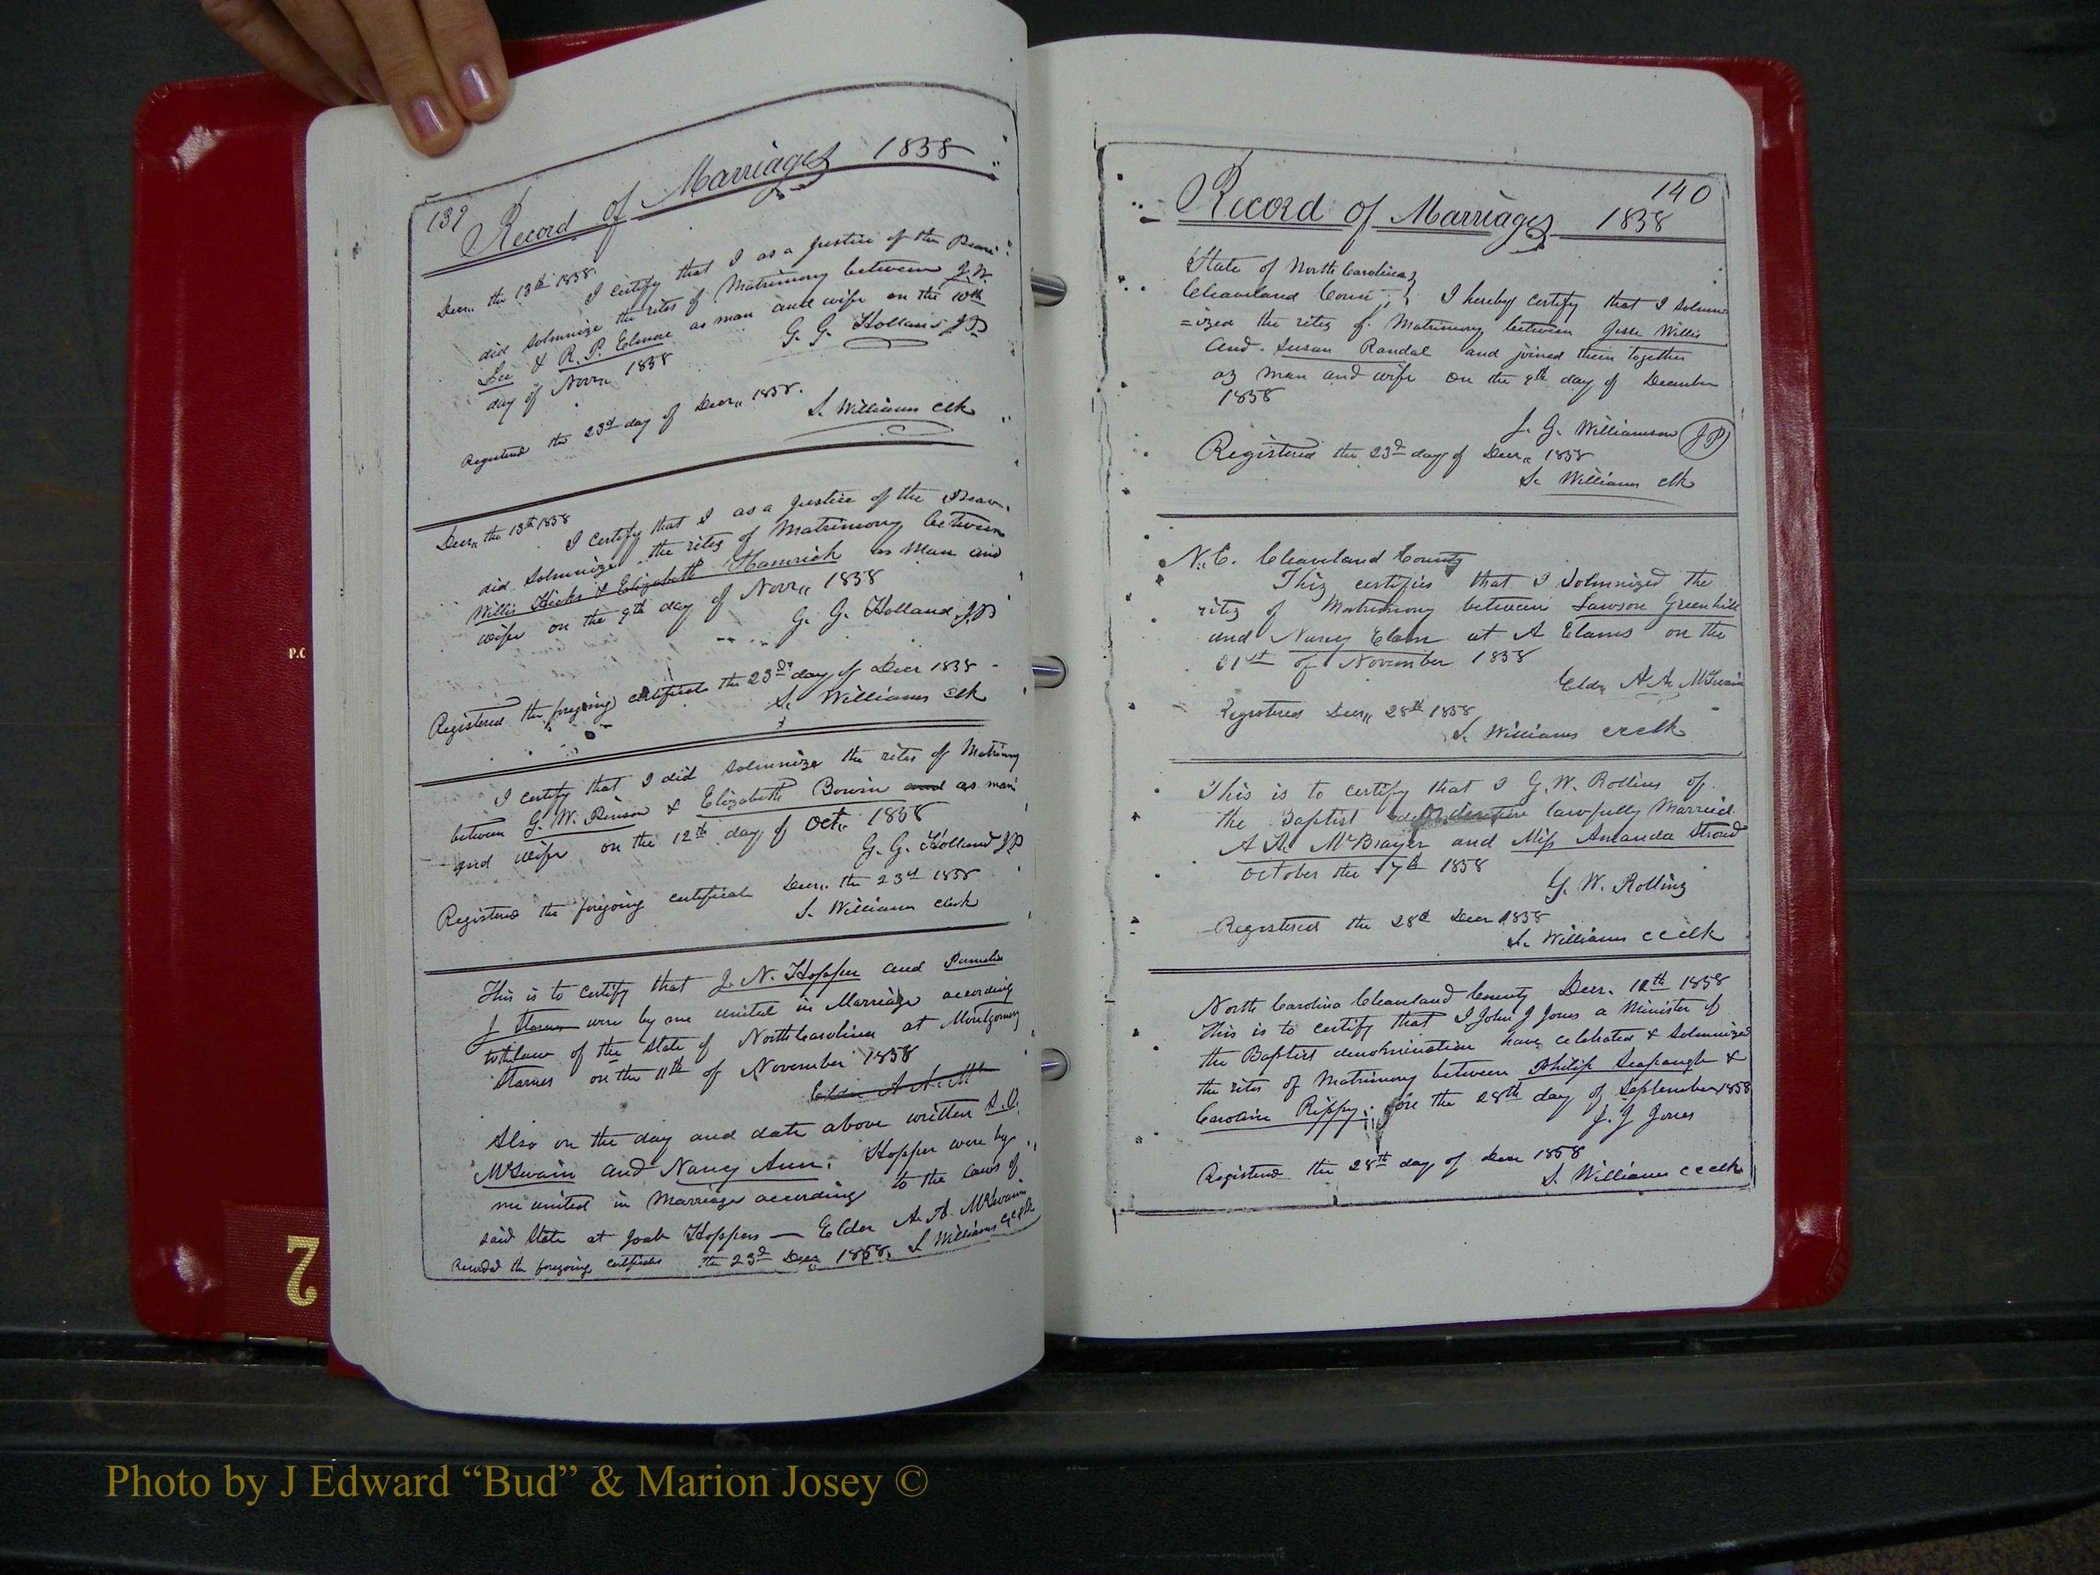 139 Record of Marriages 1858
Decr. the 13th 1858.
I certify that I as a Justice of the Peace
did solemnize the rites of Matrimony between J. W.
Lee & R. P. Elmore as man and wife on the 10th
day of Novr. 1858
G. G. Holland JP
Registered the 23d day of Decr. 1858.
S. Williams Clk
Decr. the 13th 1858
I certify that I as a Justice of the Peace
did solemnize the rites of Matrimony between
Willis Hicks & Elizabeth Hamrick as man and
wife on the 9th day of Novr. 1858
G. G. Holland JP
Registered the foregoing certificate the 23d day of Decr 1858
S. Williams Clk
I certify that I did solemnize the rites of Matrimony
between G. W. & Elizabeth Bowin and as man
and wife on the 12th day of Oct. 1858
G. G. Holland JP
Registered the foregoing certificate Decr. the 23rd 1858
S. Williams Clerk
This is to certify that J. N. Hopper and
J were by me united in Marriage according
to the laws of the State of North Carolina at Montgomery
Starnes on the 11th of November 1858
Elder A. A. Mc
Also on the day and date above written S. O.
McSwain and Nancy Ann. Hopper were by
me united in Marriage according to the laws of
said State at Joab Hoppers — Elder A. A. McSwain
Recorded the foregoing certificates the 23d Decr 1858. S Williams CCClk
140
Record of Marriages 1858
State of North Carolina
Cleaveland County I hereby certify that I solemn
=ized the rites of Matrimony between Jesse Willis
and Susan Randal and joined them together
as man and wife on the 9th day of December
1858
J. G. Williamson JP
Registered the 23d day of Decr. 1858
S. Williams clk
N. C. Cleaveland County
This certifies that I Solemnized the
rites of Matrimony between Lawson Greenhill
and Nancy Elam at A Elams on the
21st of November 1858
Elder A. A. McSwain
Registered Decr. 28th 1858
S. Williams ccclk
This is to certify that I G. W. Rollins of
the Baptist lawfully Married
A. A. McBrayer and Miss Amanda Stroud
October the 17th 1858
G. W. Rollins
Registered the 28th Decr 1858
S. Williams ccclk
North Carolina Cleaveland County Decr. 12th 1858
This is to certify that I John J Jones a Minister of
the Baptist denomination have celebrated & Solemnized
the rites of Matrimony between Philip Seapaugh &
Caroline Rippy. on the 28th day of September 1858
J. J Jones
Registered the 28th day of Decr 1858
S. Williams ccclk
P.C
2
Photo by J Edward “Bud” & Marion Josey ©